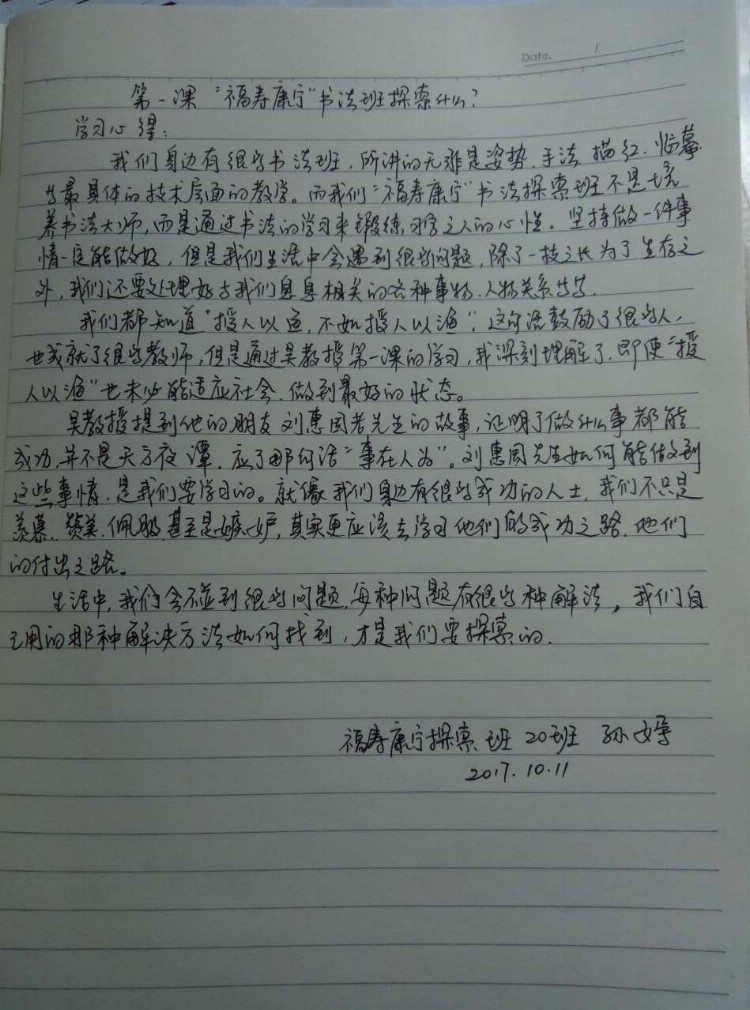 Date. 1
第一课 "福寿康宁"书法班探索什么?
学习心得:
我们身边有很多书法班,所讲的无非是姿势、手法、描红、临摹
等最具体的技术层面的教学。而我们"福寿康宁"书法探索班不是培
养书法大师,而是通过书法的学习来锻练习字之人的心性。坚持做一件事
情一定能做好,但是我们生活中会遇到很多问题,除了一技之长为了生存之
外,我们还要处理好与我们息息相关的各种事物、人物关系等等.
我们都知道"授人以鱼,不如授人以渔",这句话鼓励了很多人,
也成就了很多教师,但是通过吴教授第一课的学习,我深刻理解了,即使"授
人以渔"也未必能适应社会、做到最好的状态。
吴教授提到他的朋友刘惠国老先生的故事,证明了做什么事都能
成功,并不是天方夜谭,应了那句话"事在人为"。刘惠国先生如何能做到
这些事情,是我们要学习的。就像我们身边有很多成功的人士,我们不只是
羡慕、赞美、佩服,甚至是嫉妒,其实更应该去学习他们的成功之路,他们
的付出之路。
生活中,我们会碰到很多问题,每种问题有很多种解法,我们自
己用的那种解决方法如何找到,才是我们要探索的.
福寿康宁探索班 20班 孙婷
2017.10.11